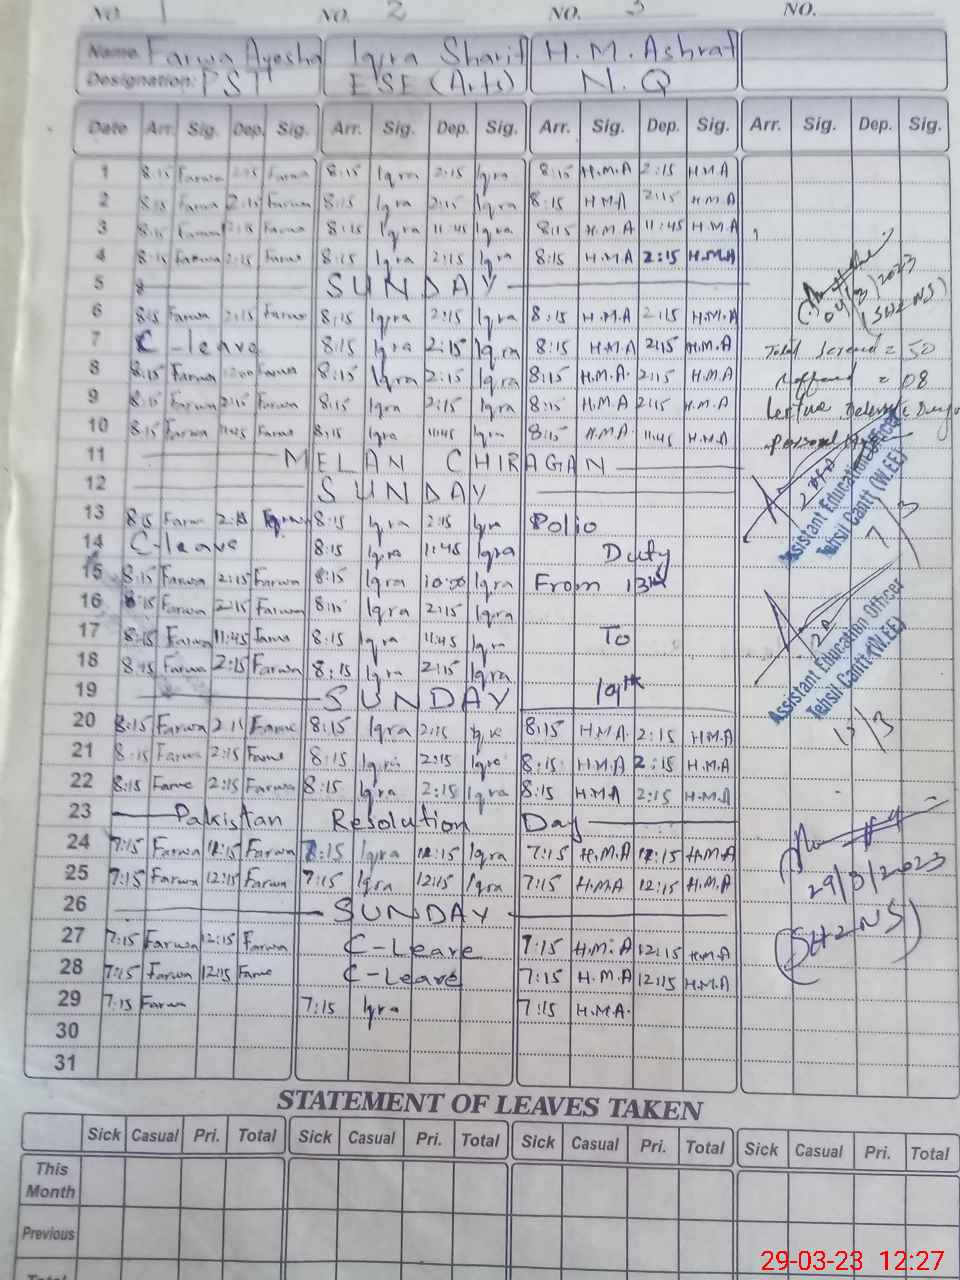 NO. 1 NO. 2 NO. 3 NO.
Name. Farwa Ayesha Iqra Sharif H.M. Ashraf
Designation: PST ESE (Arts) N.Q
Date Arr. Sig. Dep. Sig. Arr. Sig. Dep. Sig. Arr. Sig. Dep. Sig. Arr. Sig. Dep. Sig.
1 8:15 Farwa 2:15 Farwa 8:15 Iqra 2:15 Iqra 8:15 H.M.A 2:15 H.M.A
2 8:15 Farwa 2:15 Farwa 8:15 Iqra 2:15 Iqra 8:15 H.M.A 2:15 H.M.A
3 8:15 Farwa 8:15 Iqra 11:45 Iqra 8:15 H.M.A 11:45 H.M.A
4 8:15 Farwa 2:15 Farwa 8:15 Iqra 2:15 Iqra 8:15 H.M.A 2:15 H.M.A
04/3/2023
5 SUNDAY
(SH2NS)
6 8:15 Farwa 2:15 Farwa 8:15 Iqra 2:15 Iqra 8:15 H.M.A 2:15 H.M.A
7 C-leave 8:15 Iqra 2:15 Iqra 8:15 H.M.A 2:15 H.M.A Total = 50
8 8:15 Farwa Farwa 8:15 Iqra 2:15 Iqra 8:15 H.M.A. 2:15 H.M.A = 08
9 8:15 Farwa 2:15 Farwa 8:15 Iqra 2:15 Iqra 8:15 H.M.A 2:15 H.M.A
10 8:15 Farwa 11:45 Farwa 8:15 Iqra 11:45 Iqra 8:15 H.M.A 11:45 H.M.A
11 MELAN CHIRAGAN
12 SUNDAY
Assistant Education Officer
Tehsil Cantt (W.EE)
7/3
13 8:15 Farwa 2:15 8:15 Iqra 2:15 Iqra Polio
14 C-leave 8:15 Iqra 11:45 Iqra Duty
15 8:15 Farwa 2:15 Farwa 8:15 Iqra 10:30 Iqra From 13th
16 8:15 Farwa 2:15 Farwa 8:15 Iqra 2:15 Iqra
17 8:15 Farwa 11:45 Farwa 8:15 Iqra 11:45 Iqra To
18 8:15 Farwa 2:15 Farwa 8:15 Iqra 2:15 Iqra
19 SUNDAY 19th
Assistant Education Officer
Tehsil Cantt (W.EE)
17/3
20 8:15 Farwa 2:15 Farwa 8:15 Iqra 2:15 Iqra 8:15 H.M.A. 2:15 H.M.A
21 8:15 Farwa 2:15 Farwa 8:15 Iqra 2:15 Iqra 8:15 H.M.A 2:15 H.M.A
22 8:15 Farwa 2:15 Farwa 8:15 Iqra 2:15 Iqra 8:15 H.M.A 2:15 H.M.A
23 Pakistan Resolution Day
24 7:15 Farwa 12:15 Farwa 7:15 Iqra 12:15 Iqra 7:15 H.M.A 12:15 H.M.A
25 7:15 Farwa 12:15 Farwa 7:15 Iqra 12:15 Iqra 7:15 H.M.A 12:15 H.M.A
29/3/2023
26 SUNDAY
27 7:15 Farwa 12:15 Farwa C-Leave 7:15 H.M.A 12:15 H.M.A (SH2NS)
28 7:15 Farwa 12:15 Farwa C-Leave 7:15 H.M.A 12:15 H.M.A
29 7:15 Farwa 7:15 Iqra 7:15 H.M.A.
30
31
STATEMENT OF LEAVES TAKEN
Sick Casual Pri. Total Sick Casual Pri. Total Sick Casual Pri. Total Sick Casual Pri. Total
This
Month
Previous
Total
29-03-23 12:27